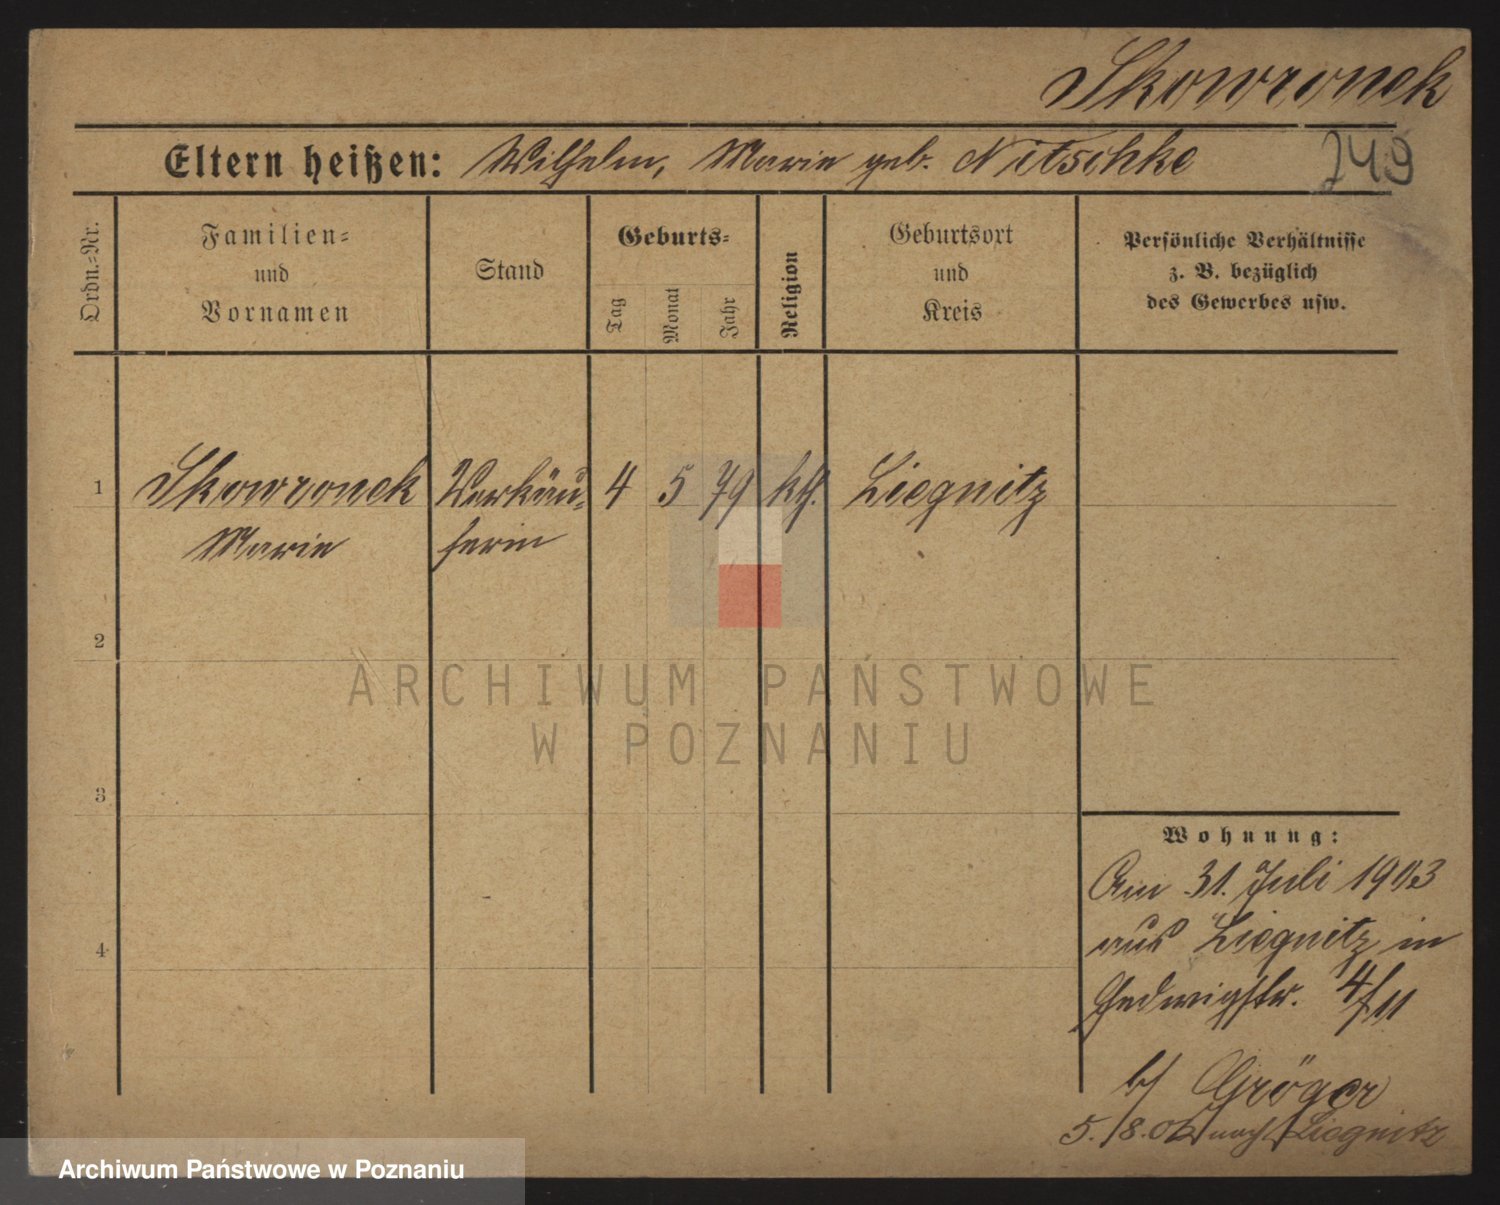 Skowronek
Eltern heißen: Wilhelm, Marie geb. Nitschke
249
Ordn.-Nr.
Familien-
und
Vornamen
Stand
Geburts-
Tag
Monat
Jahr
Religion
Geburtsort
und
Kreis
Persönliche Verhältnisse
z. B. bezüglich
des Gewerbes usw.
1 Skowronek Verkäu- 4 5 79 kth. Liegnitz
Marie ferin
2
ARCHIWUM PAŃSTWOWE
W POZNANIU
3
Wohnung:
Am 31. Juli 1903
4 aus Liegnitz in
Hedwigstr. 4/11
b/ Gröger
5./8. nach Liegnitz
Archiwum Państwowe w Poznaniu